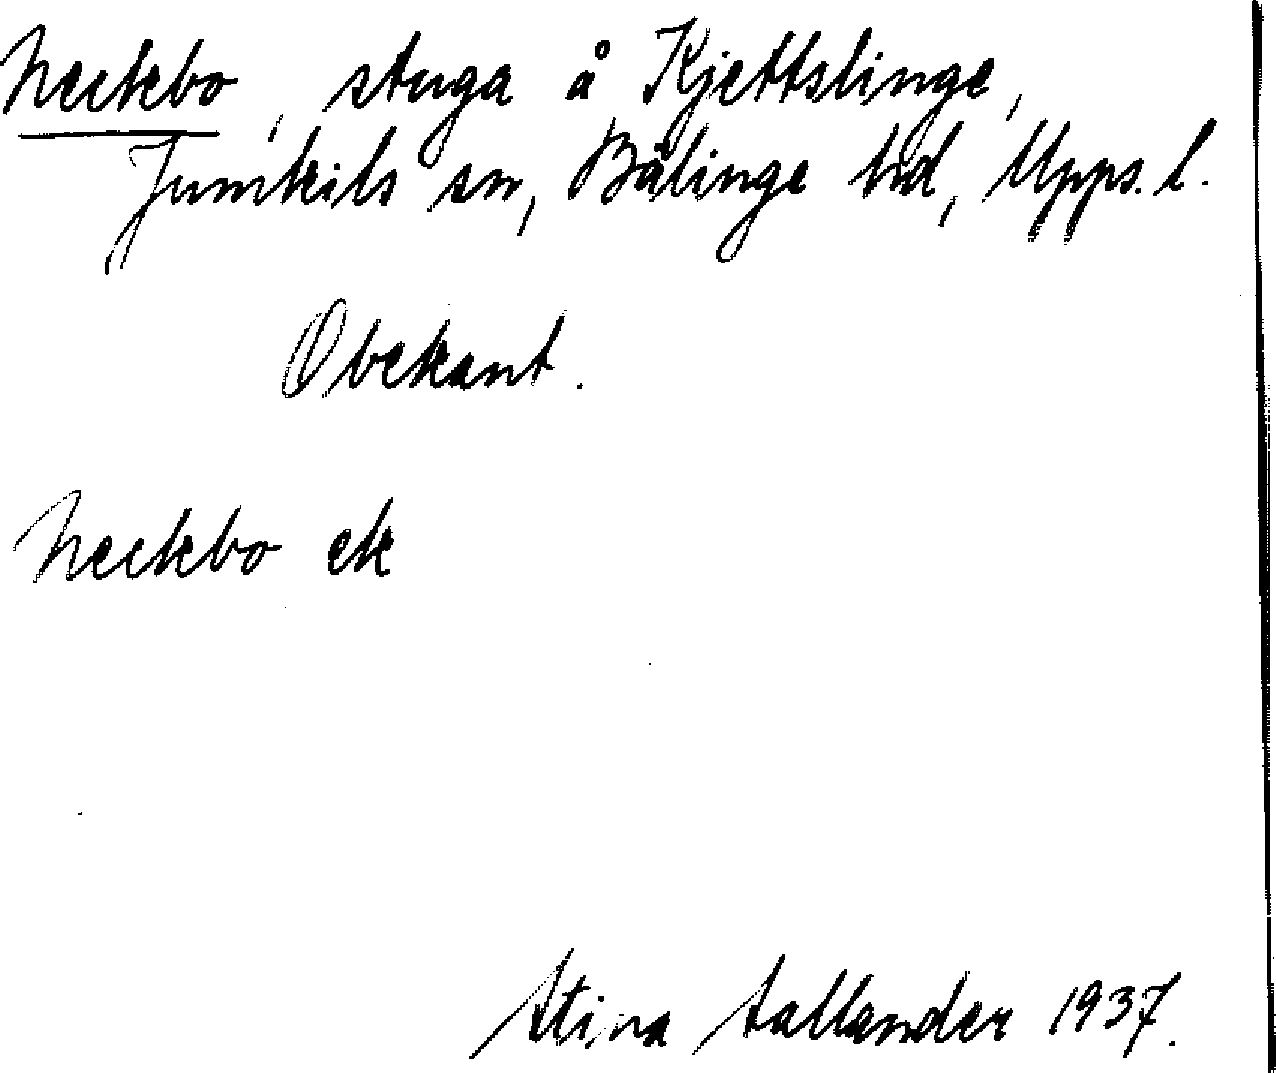 Neckbo, stuga å Kjettslinge,
Jumkils sn, Bälinge hd, Upps. l.
Obekant.
Neckbo ek
Stina Sallander 1937.